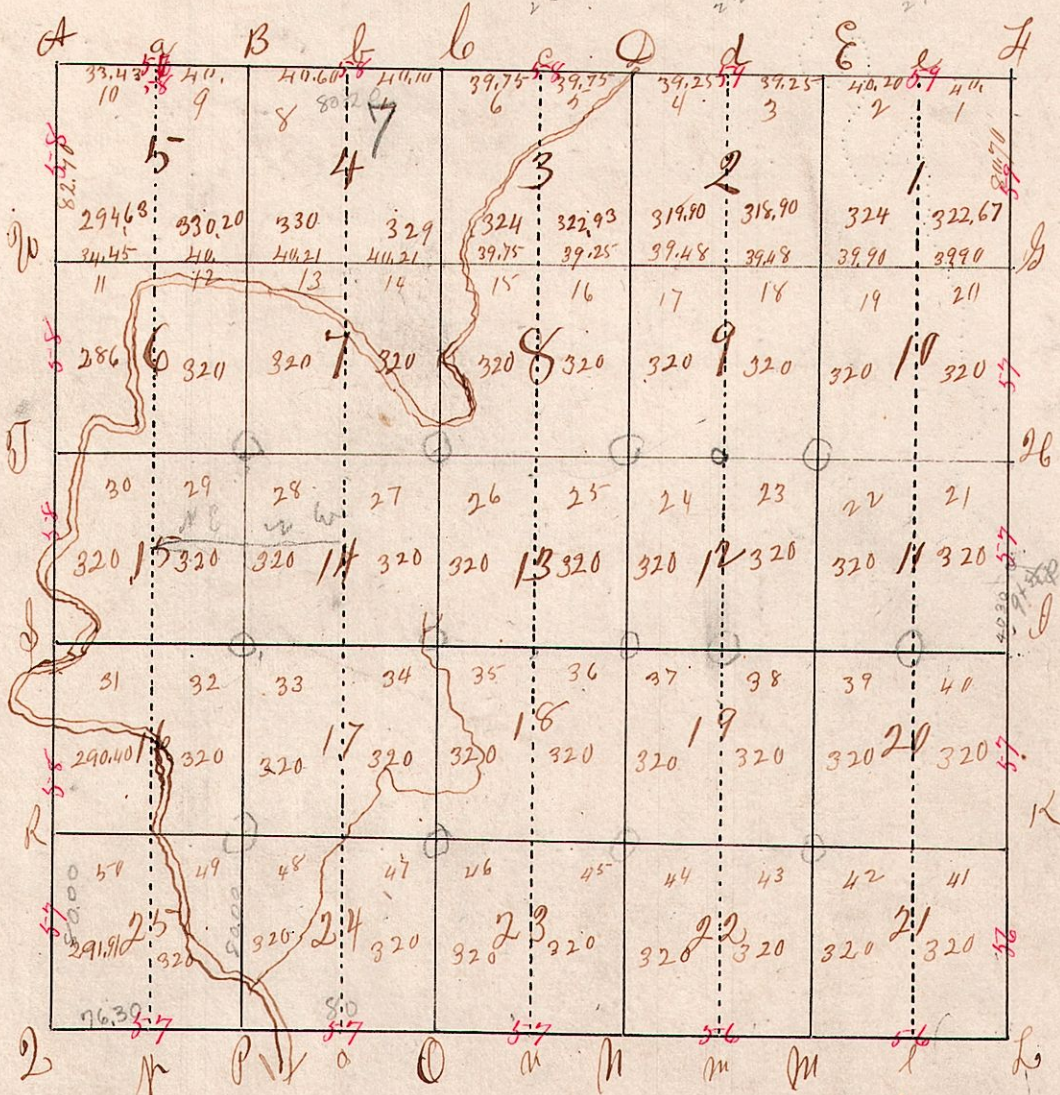 A a B b C c D d E e F
33.43 58 40. 40.60 58 40.10 39.75 58 39.75 39.25 59 39.25 40.20 59 40.
10 58 9 8 80.20 7 6 5 4 3 2 1
58 82.70 5 4 3 2 1 80.70 59
294,63 330,20 330 329 324 322,93 319,90 318,90 324 322,67
34.45 40. 40.21 40.21 39.75 39.25 39.48 39.48 39.90 3990 G
11 12 13 14 15 16 17 18 19 20
58 286 6 320 320 7 320 320 8 320 320 9 320 320 10 320 57
H
30 29 28 27 26 25 24 23 22 21
58 320 15 320 320 14 320 320 13 320 320 12 320 320 11 320 57
I
31 32 33 34 35 36 37 38 39 40
58 290.40 16 320 320 17 320 320 18 320 320 19 320 320 20 320 57
R K
50 49 48 47 46 45 44 43 42 41
57 80.00 291,910 25 320 80.00 320 24 320 320 23 320 320 22 320 320 21 320 56
76,30 57 80 57 57 56 56
Q p P o O n N m M l L